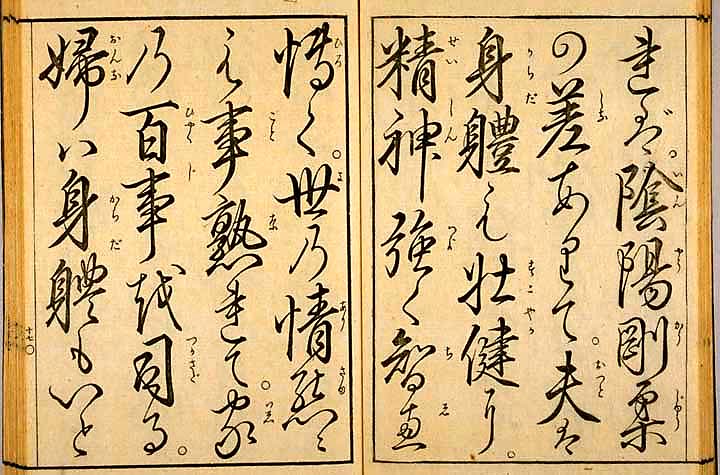 れば。陰陽剛柔
の差ありて。夫は
身體も壮健に。
精神強く智恵
博く。世の情態に
も事熟れて。家
の百事を司る
婦ハ身體もいと
十七